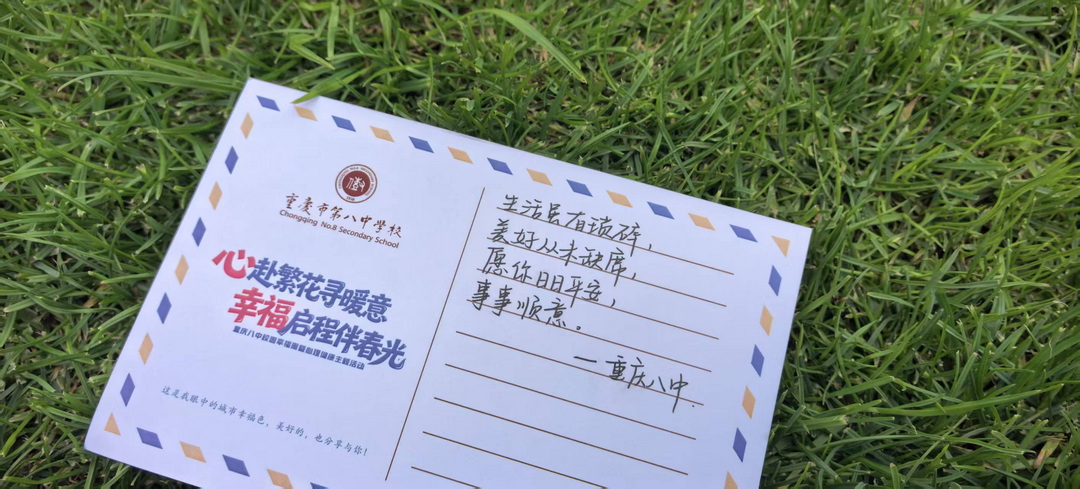 重庆市第八中学校
Chongqing No.8 Secondary School
心赴繁花寻暖意
幸福启程伴春光
重庆八中校园幸福周暨心理健康主题活动
这是我眼中的城市幸福色，美好的，也分享与你！
生活虽有琐碎，
美好从未缺席，
愿你日日平安，
事事顺意。
—重庆八中.